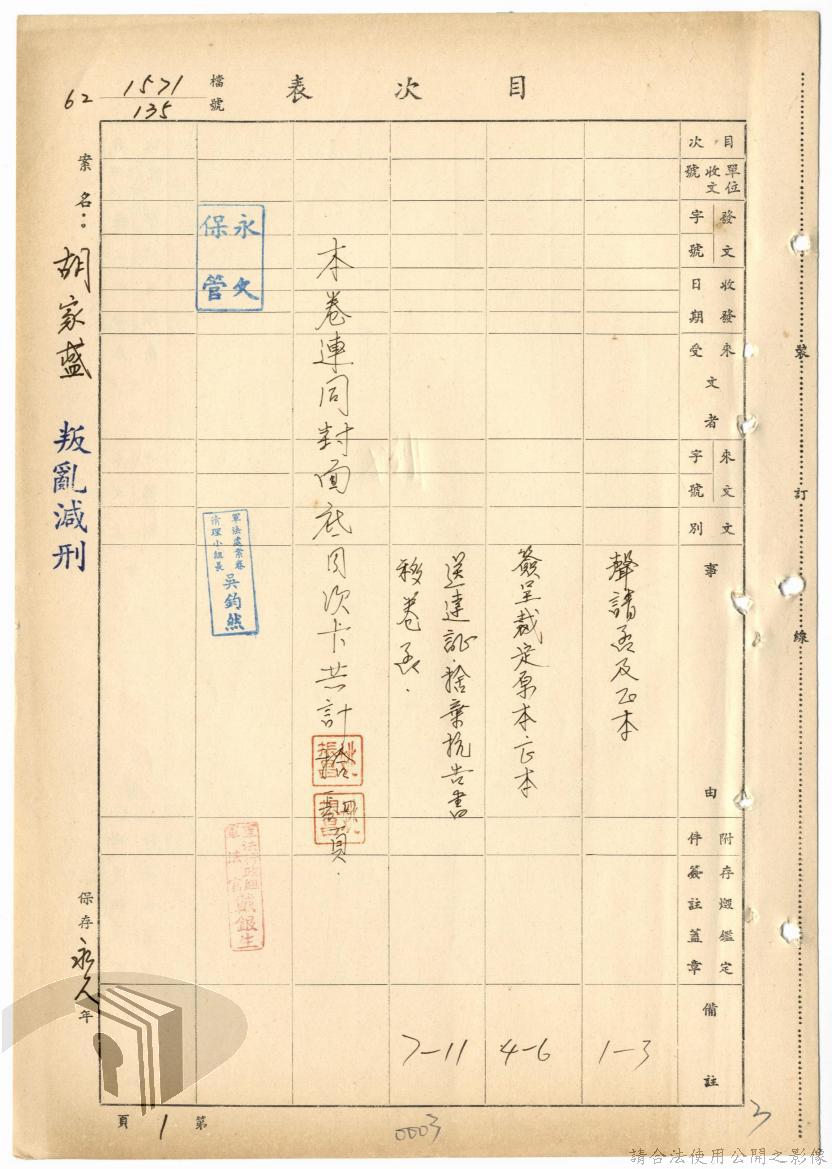 目次表
檔號
62 1571
135
目次
單位收文號
發文字號
收發日期
來文受文者
來文字號
文別
事由
附件
存燬鑑定簽註蓋章
備註
聲請函及正本
1-3
簽呈裁定原本正本
4-6
送達証.捨棄抗告書
移卷函.
7-11
本卷連同封面底目次卡共計拾
頁.
永久保管
軍法處案卷
清理小組長
吳鈞然
軍法官 戴銀生
案名：胡家盛 叛亂減刑
保存永久年
第1頁
0003
3
裝訂線
請合法使用公開之影像